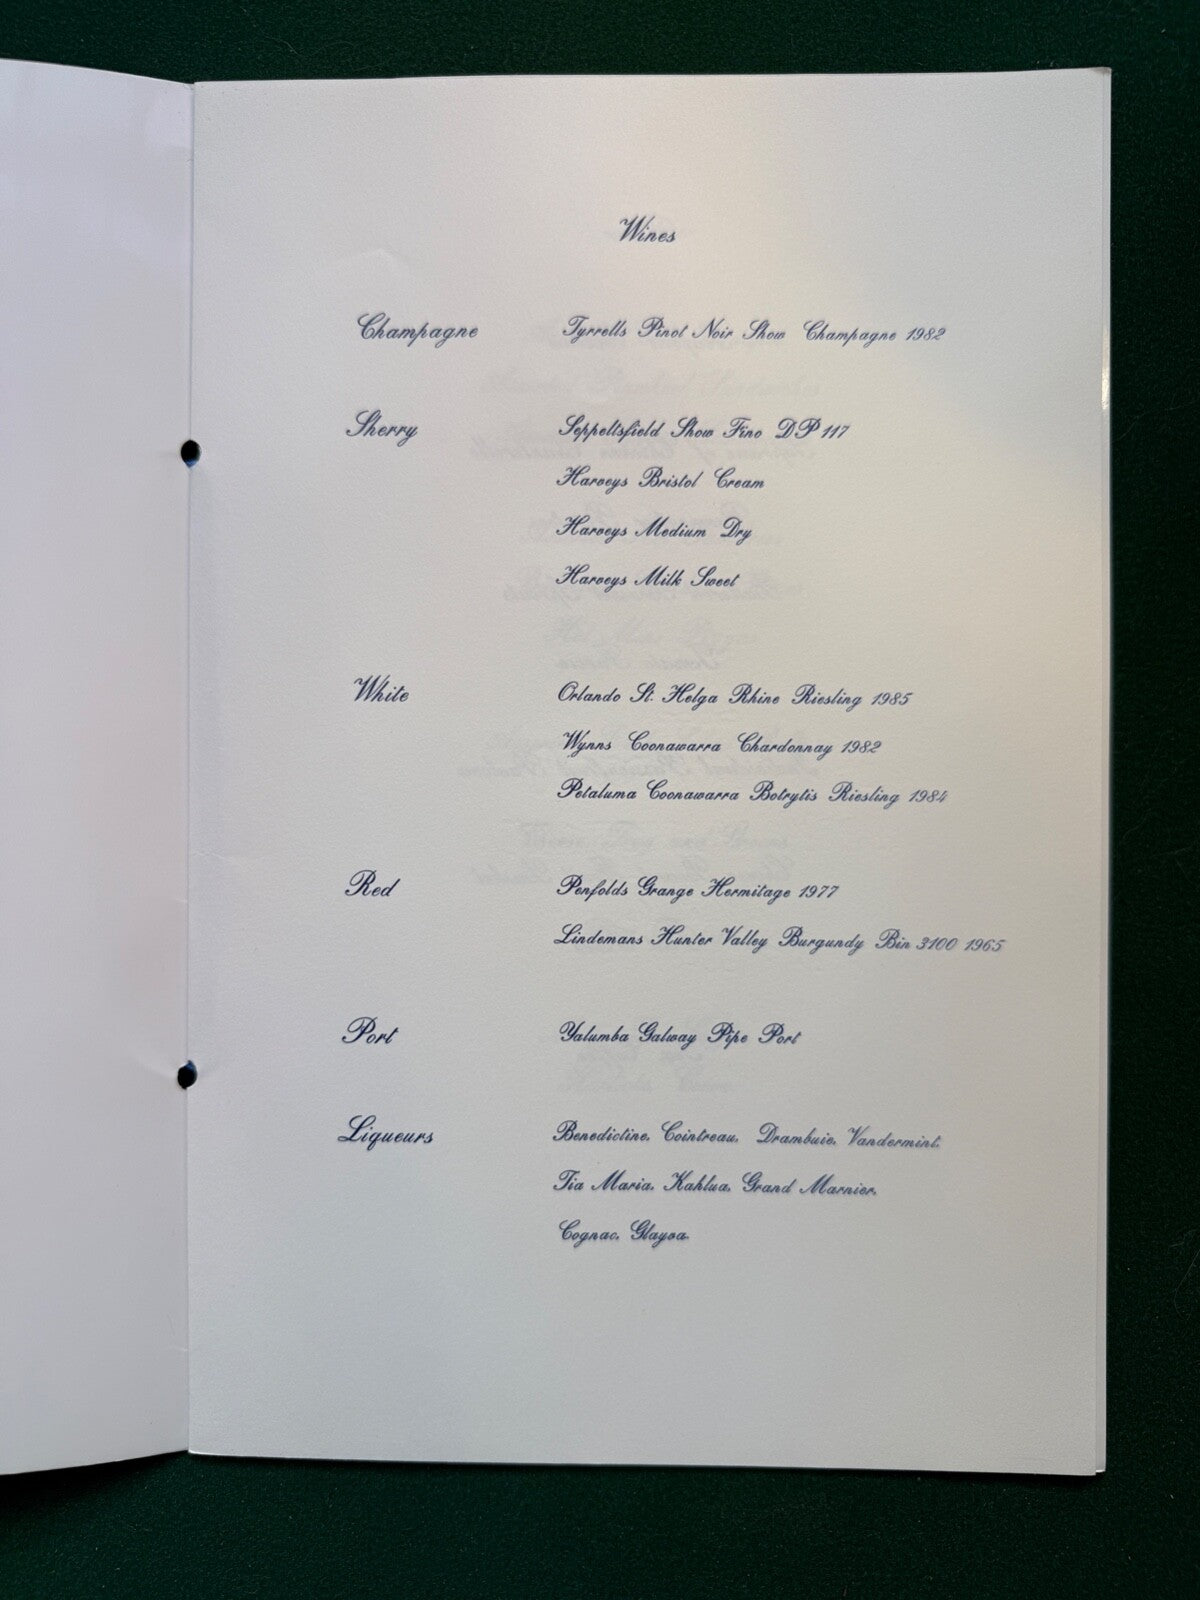 Wines
Champagne Tyrrells Pinot Noir Show Champagne 1982
Sherry Seppeltsfield Show Fino DP 117
Harveys Bristol Cream
Harveys Medium Dry
Harveys Milk Sweet
White Orlando St. Helga Rhine Riesling 1985
Wynns Coonawarra Chardonnay 1982
Petaluma Coonawarra Botrytis Riesling 1984
Red Penfolds Grange Hermitage 1977
Lindemans Hunter Valley Burgundy Bin 3100 1965
Port Yalumba Galway Pipe Port
Liqueurs Benedictine, Cointreau, Drambuie, Vandermint,
Tia Maria, Kahlua, Grand Marnier,
Cognac, Glayva.